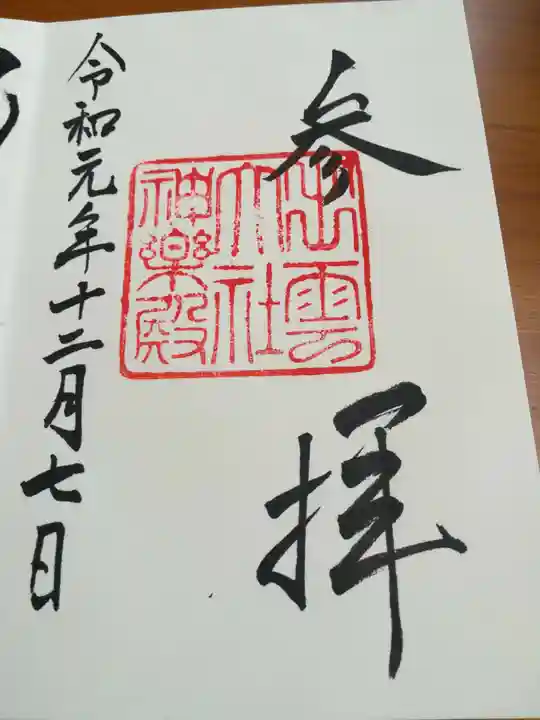 参拝
出雲
大社
神楽殿
令和元年十二月七日